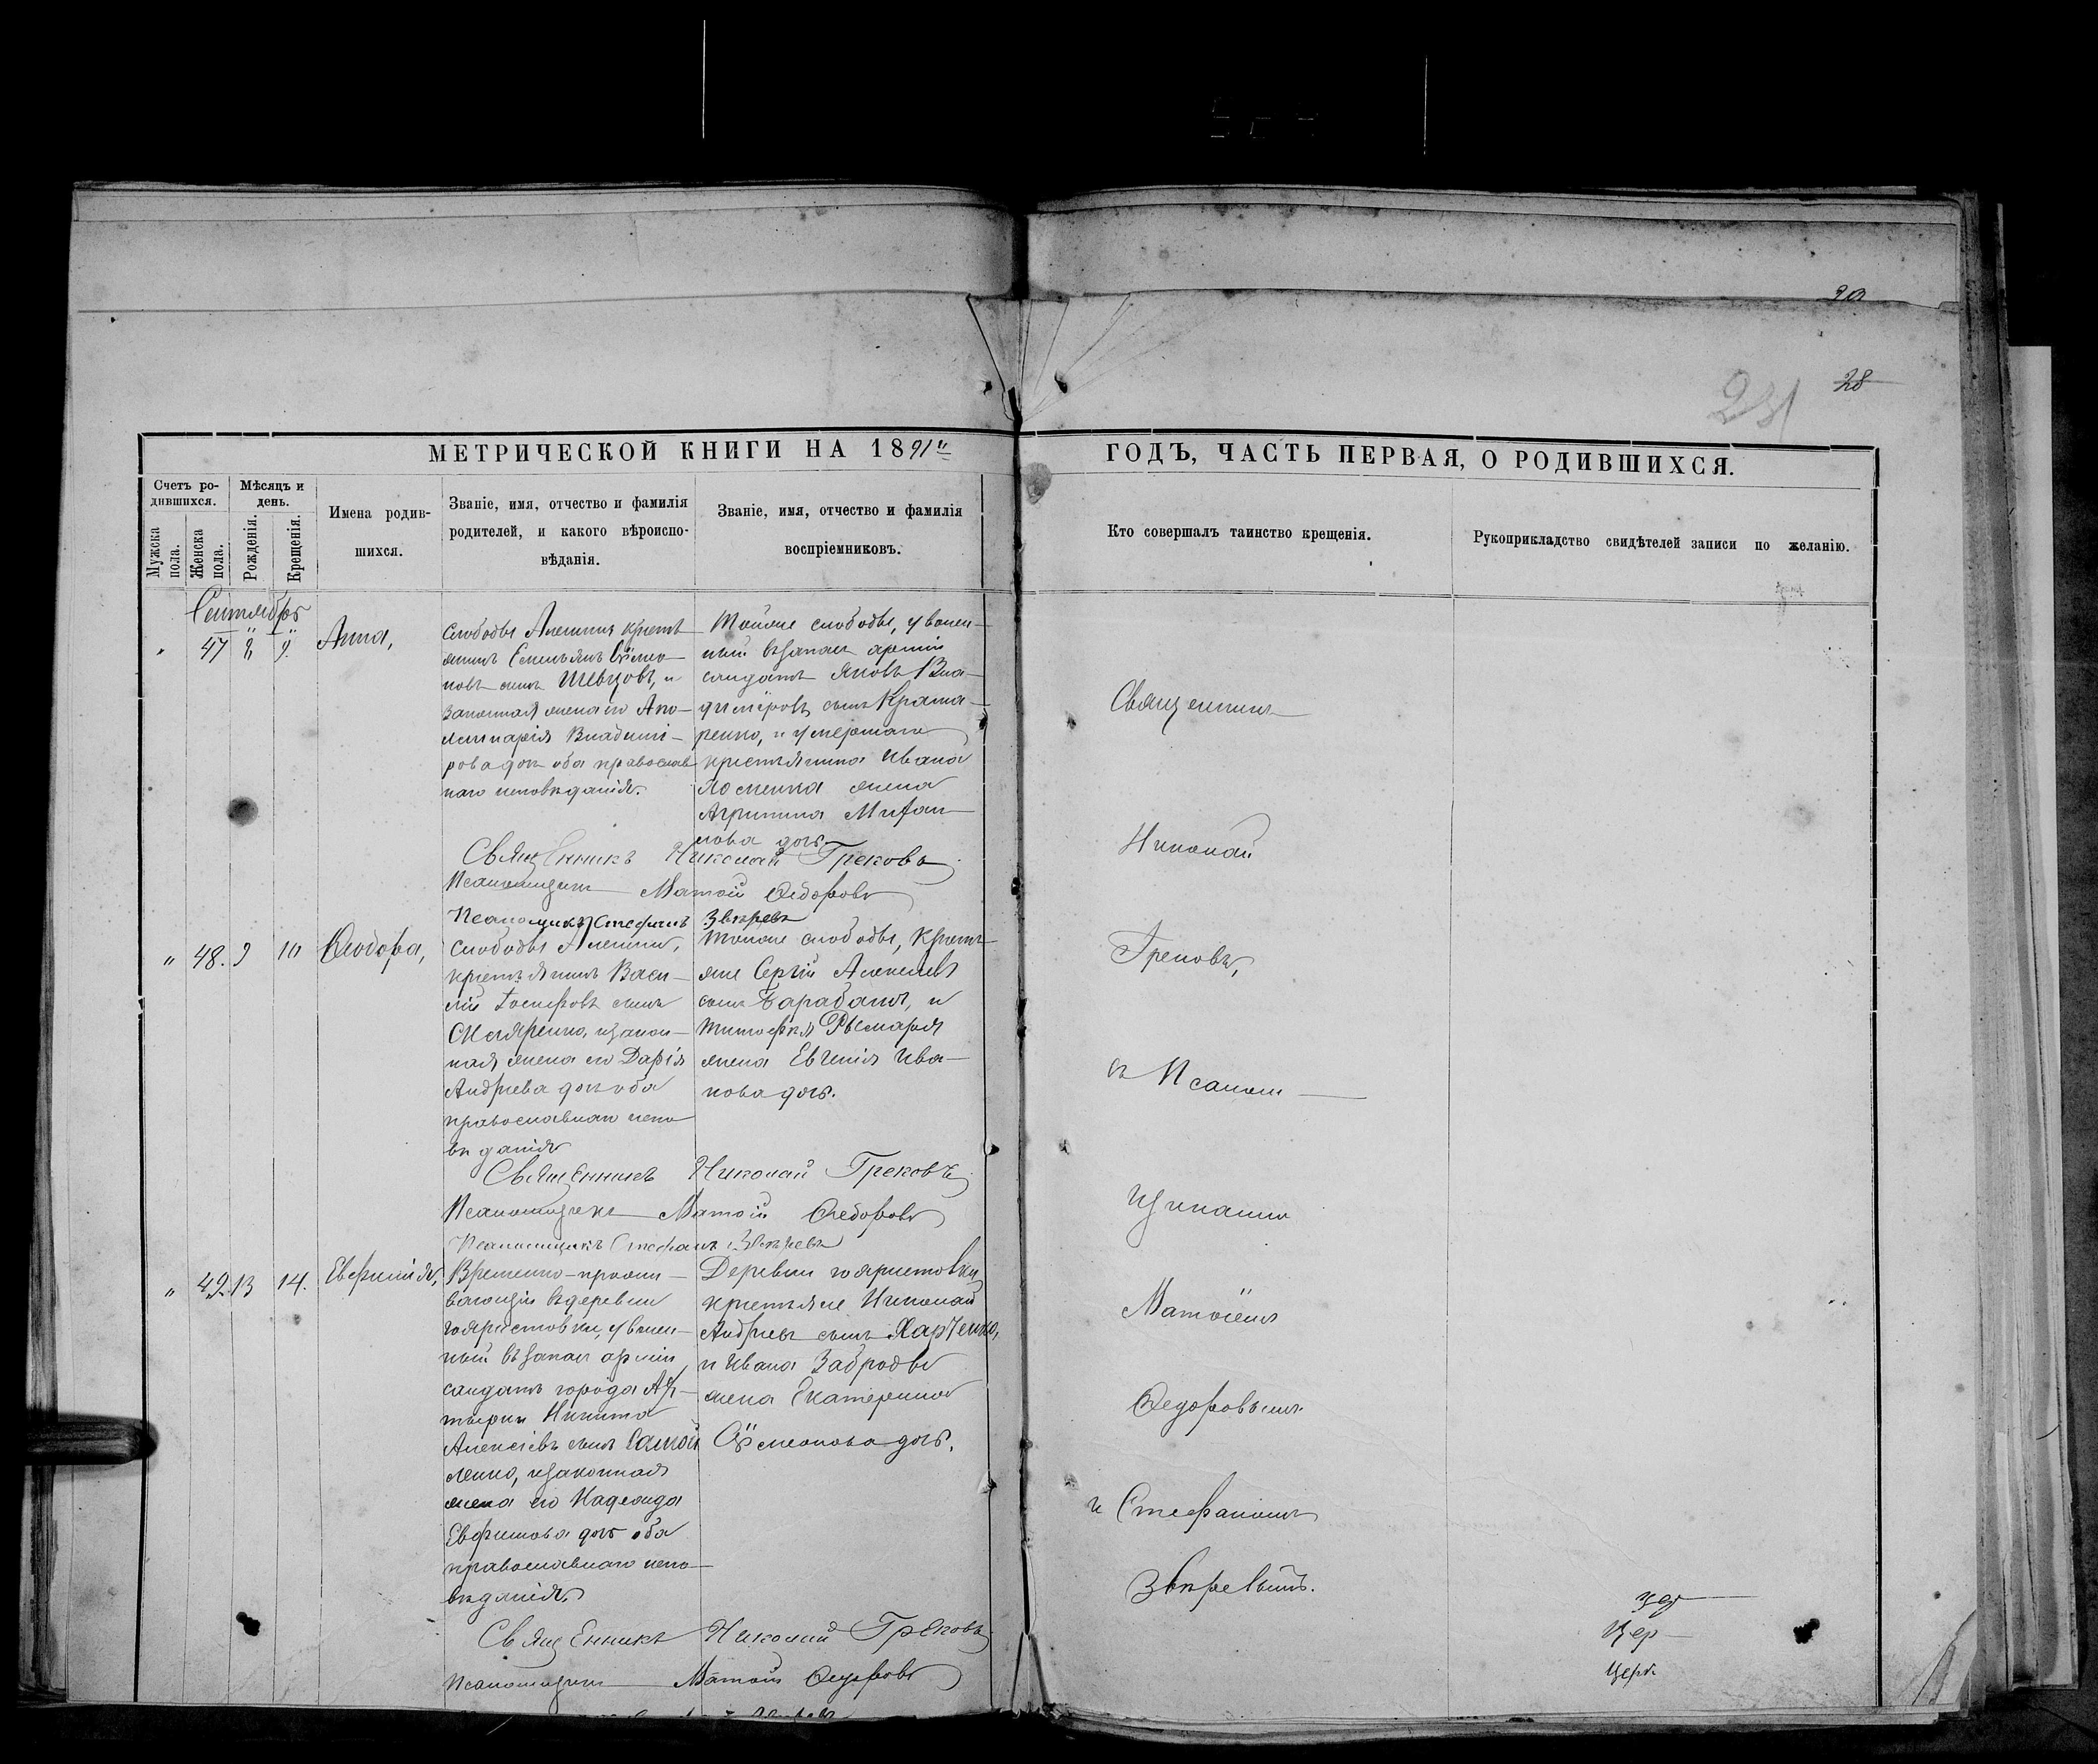 28
231
МЕТРИЧЕСКОЙ КНИГИ НА 1891й
ГОДЪ, ЧАСТЬ ПЕРВАЯ, О РОДИВШИХСЯ.
Счетъ ро-
дившихся.
Мѣсяцъ и
день.
Мужска
пола.
Женска
пола.
Рожденія.
Крещенія.
Имена родив-
шихся.
Званіе, имя, отчество и фамилія
родителей, и какого вѣроиспо-
вѣданія.
Званіе, имя, отчество и фамилія
воспріемниковъ.
Кто совершалъ таинство крещенія.
Рукоприкладство свидѣтелей записи по желанію.
Сентябрь
" 47 9. Анна,
Слободы Алешни крестья-
нинъ Емельянъ
новъ сынъ Швецовъ, и
законная жена его Апо-
линарія Владимі-
рова дочь оба православ
наго исповѣданія.
Тойже слободы, уволен-
ный въ запасъ арміи
солдатъ Яковъ Вла-
диміровъ сынъ Крама-
ренко, и умершаго
крестьянина Ивана
жена
Агрипина
лова дочь.
Священникъ Николай Грековъ
Псаломщикъ Матѳій Ѳедоровъ
Псаломщикъ Стефанъ Звѣревъ
" 48. 9 10 Ѳеодора,
Слободы Алешни,
крестьянинъ Васи-
лій Іосифовъ сынъ
Скляренко, и закон-
ная жена его Дарія
Андреева дочь оба
православнаго испо
вѣданія
Тойже слободы, кресть-
яне Сергій Алексѣевъ
сынъ Барабаш, и
Тимофѣя Рымаря
жена Евгенія Ива-
нова дочь.
Священникъ Николай Грековъ
Псаломщикъ Матѳій Ѳедоровъ
Псаломщикъ Стефанъ Звѣревъ
" 49. 13 14. Евфимія,
Временно-прожи-
вающій въ деревни
уволен-
ный въ запасъ арміи
солдатъ города Ах-
тырки Никита
Алексѣевъ сынъ Самой
ленко, и законная
жена его Надежда
Евфимова дочь оба
православнаго испо-
вѣданія.
Деревни
крестьяне Николай
Андреевъ сынъ Харченко,
и Ивана Заброды
жена Екатерина
Симеонова дочь.
Священникъ Николай Грековъ
Псаломщикъ Матѳій Ѳедоровъ
Священникъ
Николай
Грековъ,
съ Псалом-
щиками
Матѳіемъ
Ѳедоровымъ
и Стефаномъ
Звѣревымъ.
Цер
Церк